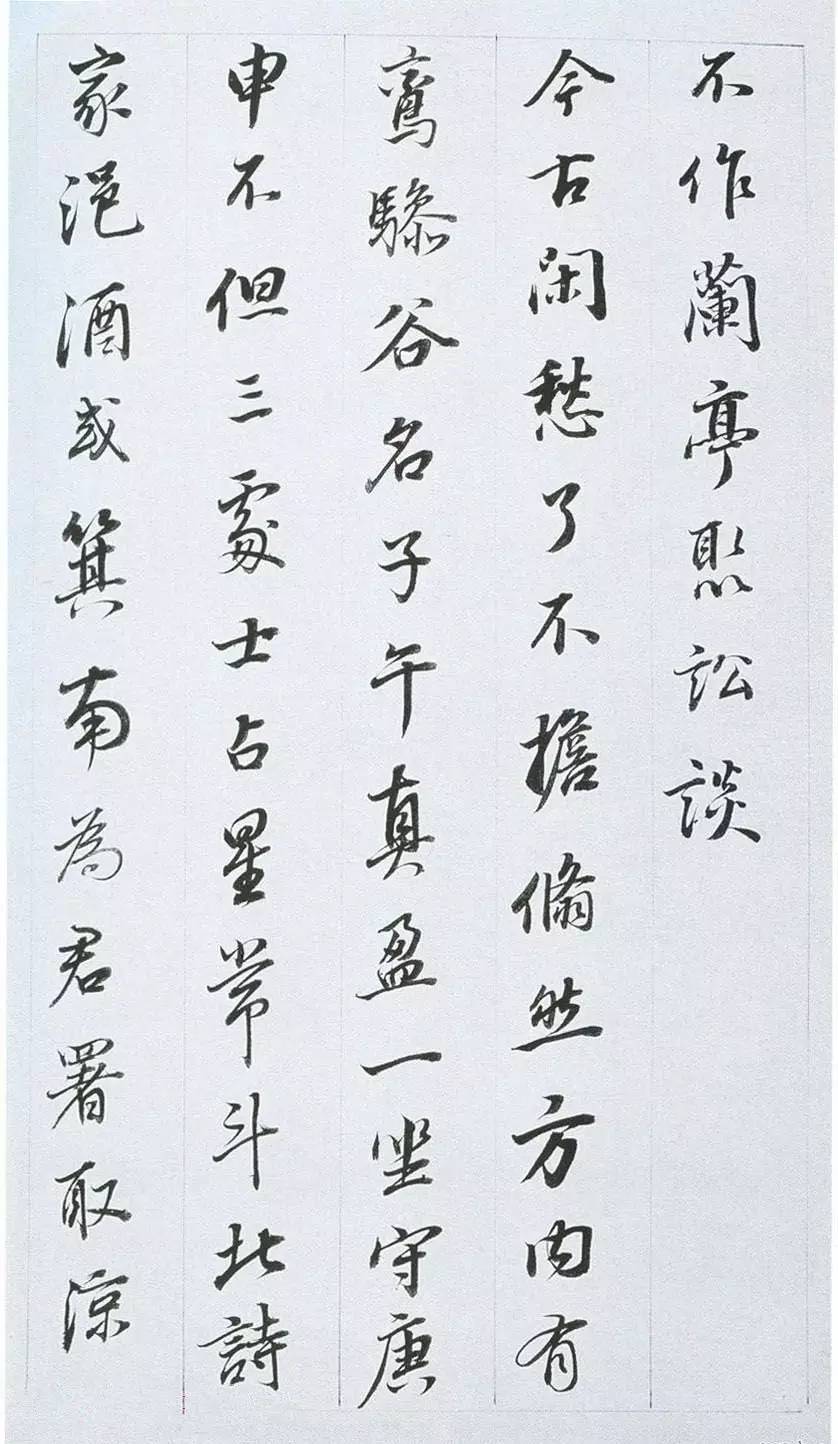 不作蘭亭聚訟談
今古閑愁了不擔翛然方内有
鸞驂谷名子午真盈一坐守庚
申不但三處士占星常斗北詩
家浥酒或箕南為君署取涼